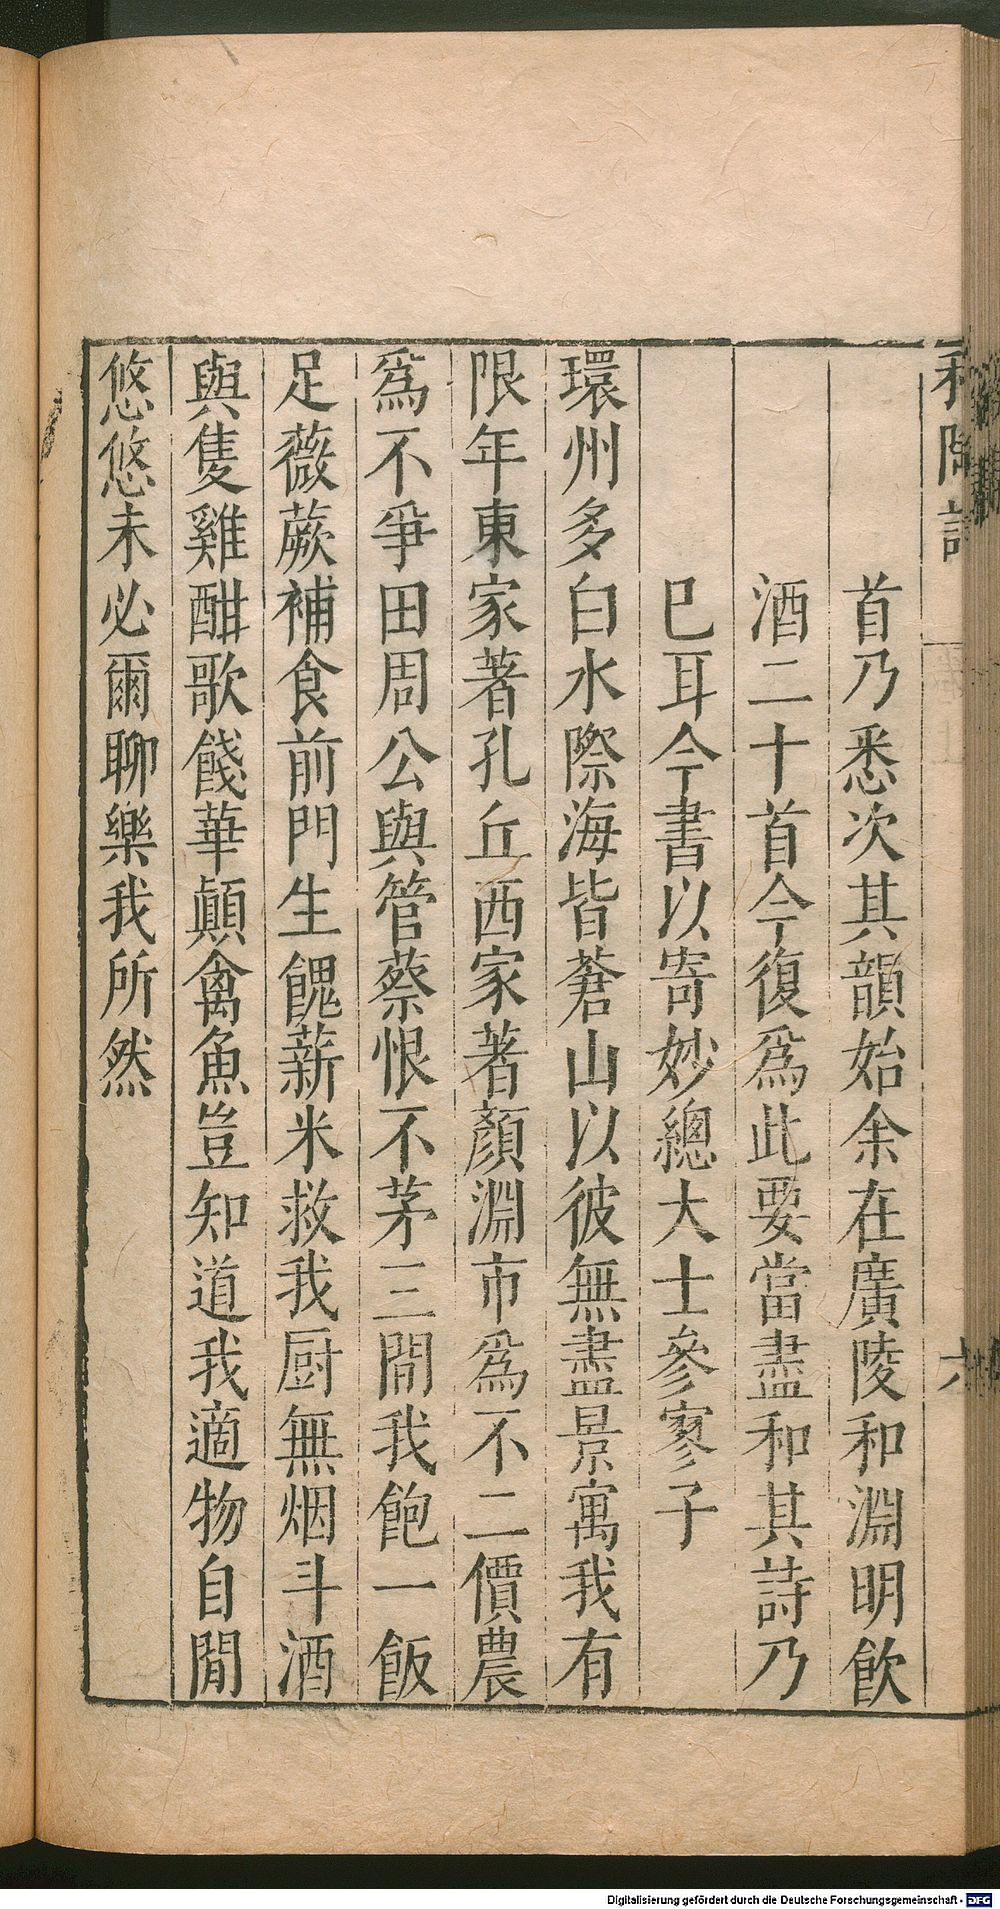 和陶詩
六
首乃悉次其韻始余在廣陵和淵明飲
酒二十首今復爲此要當盡和其詩乃
巳耳今書以寄妙總大士參寥子
環州多白水際海皆蒼山以彼無盡景寓我有
限年東家著孔丘西家著顏淵市爲不二價農
爲不爭田周公與管蔡恨不茅三間我飽一飯
足薇蕨補食前門生餽薪米救我厨無烟斗酒
與隻雞酣歌餞華顛禽魚豈知道我適物自閒
悠悠未必爾聊樂我所然
Digitalisierung gefördert durch die Deutsche Forschungsgemeinschaft - DFG